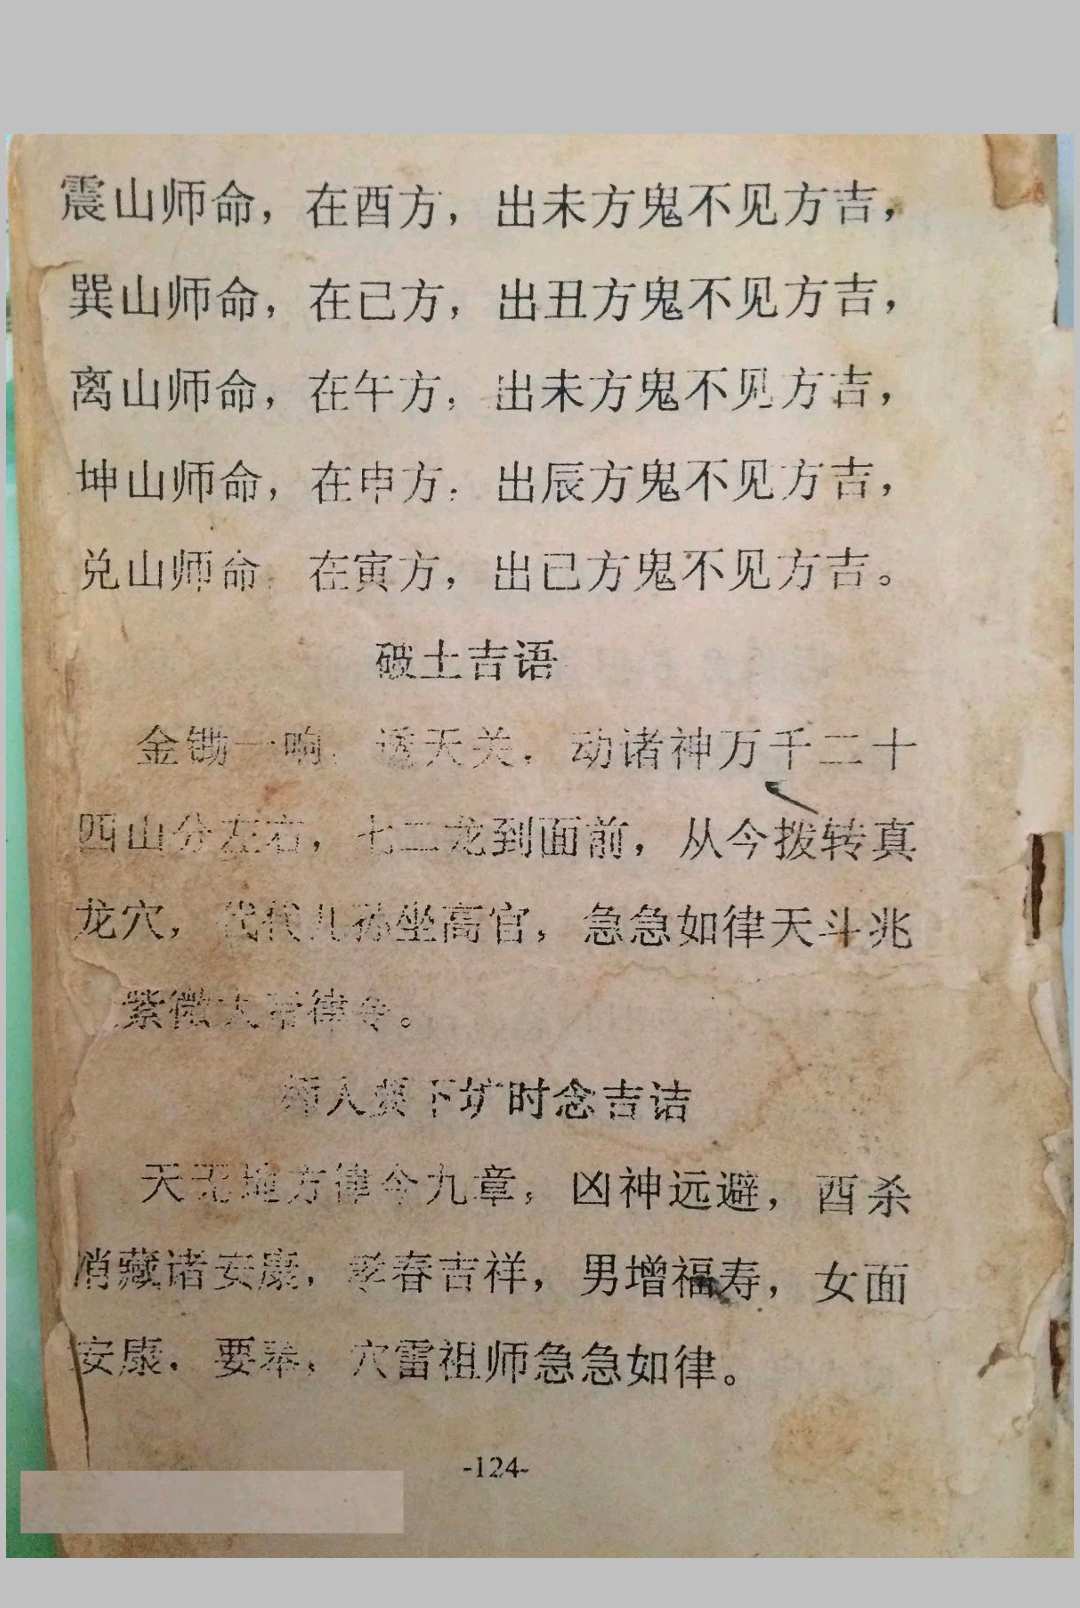 震山师命，在酉方，出未方鬼不见方吉，
巽山师命，在己方，出丑方鬼不见方吉，
离山师命，在午方，出未方鬼不见方吉，
坤山师命，在申方，出辰方鬼不见方吉，
兑山师命，在寅方，出已方鬼不见方吉。
破土吉语
金锄一响，透天关，动诸神万千二十
四山分左右，七二龙到面前，从今拨转真
龙穴，代代儿孙坐高官，急急如律天斗兆
紫微大帝律令。
要下圹时念吉诘
天无地方律令九章，凶神远避，酉杀
消藏诸安康，孝春吉祥，男增福寿，女面
安康，要奉，穴雷祖师急急如律。
-124-